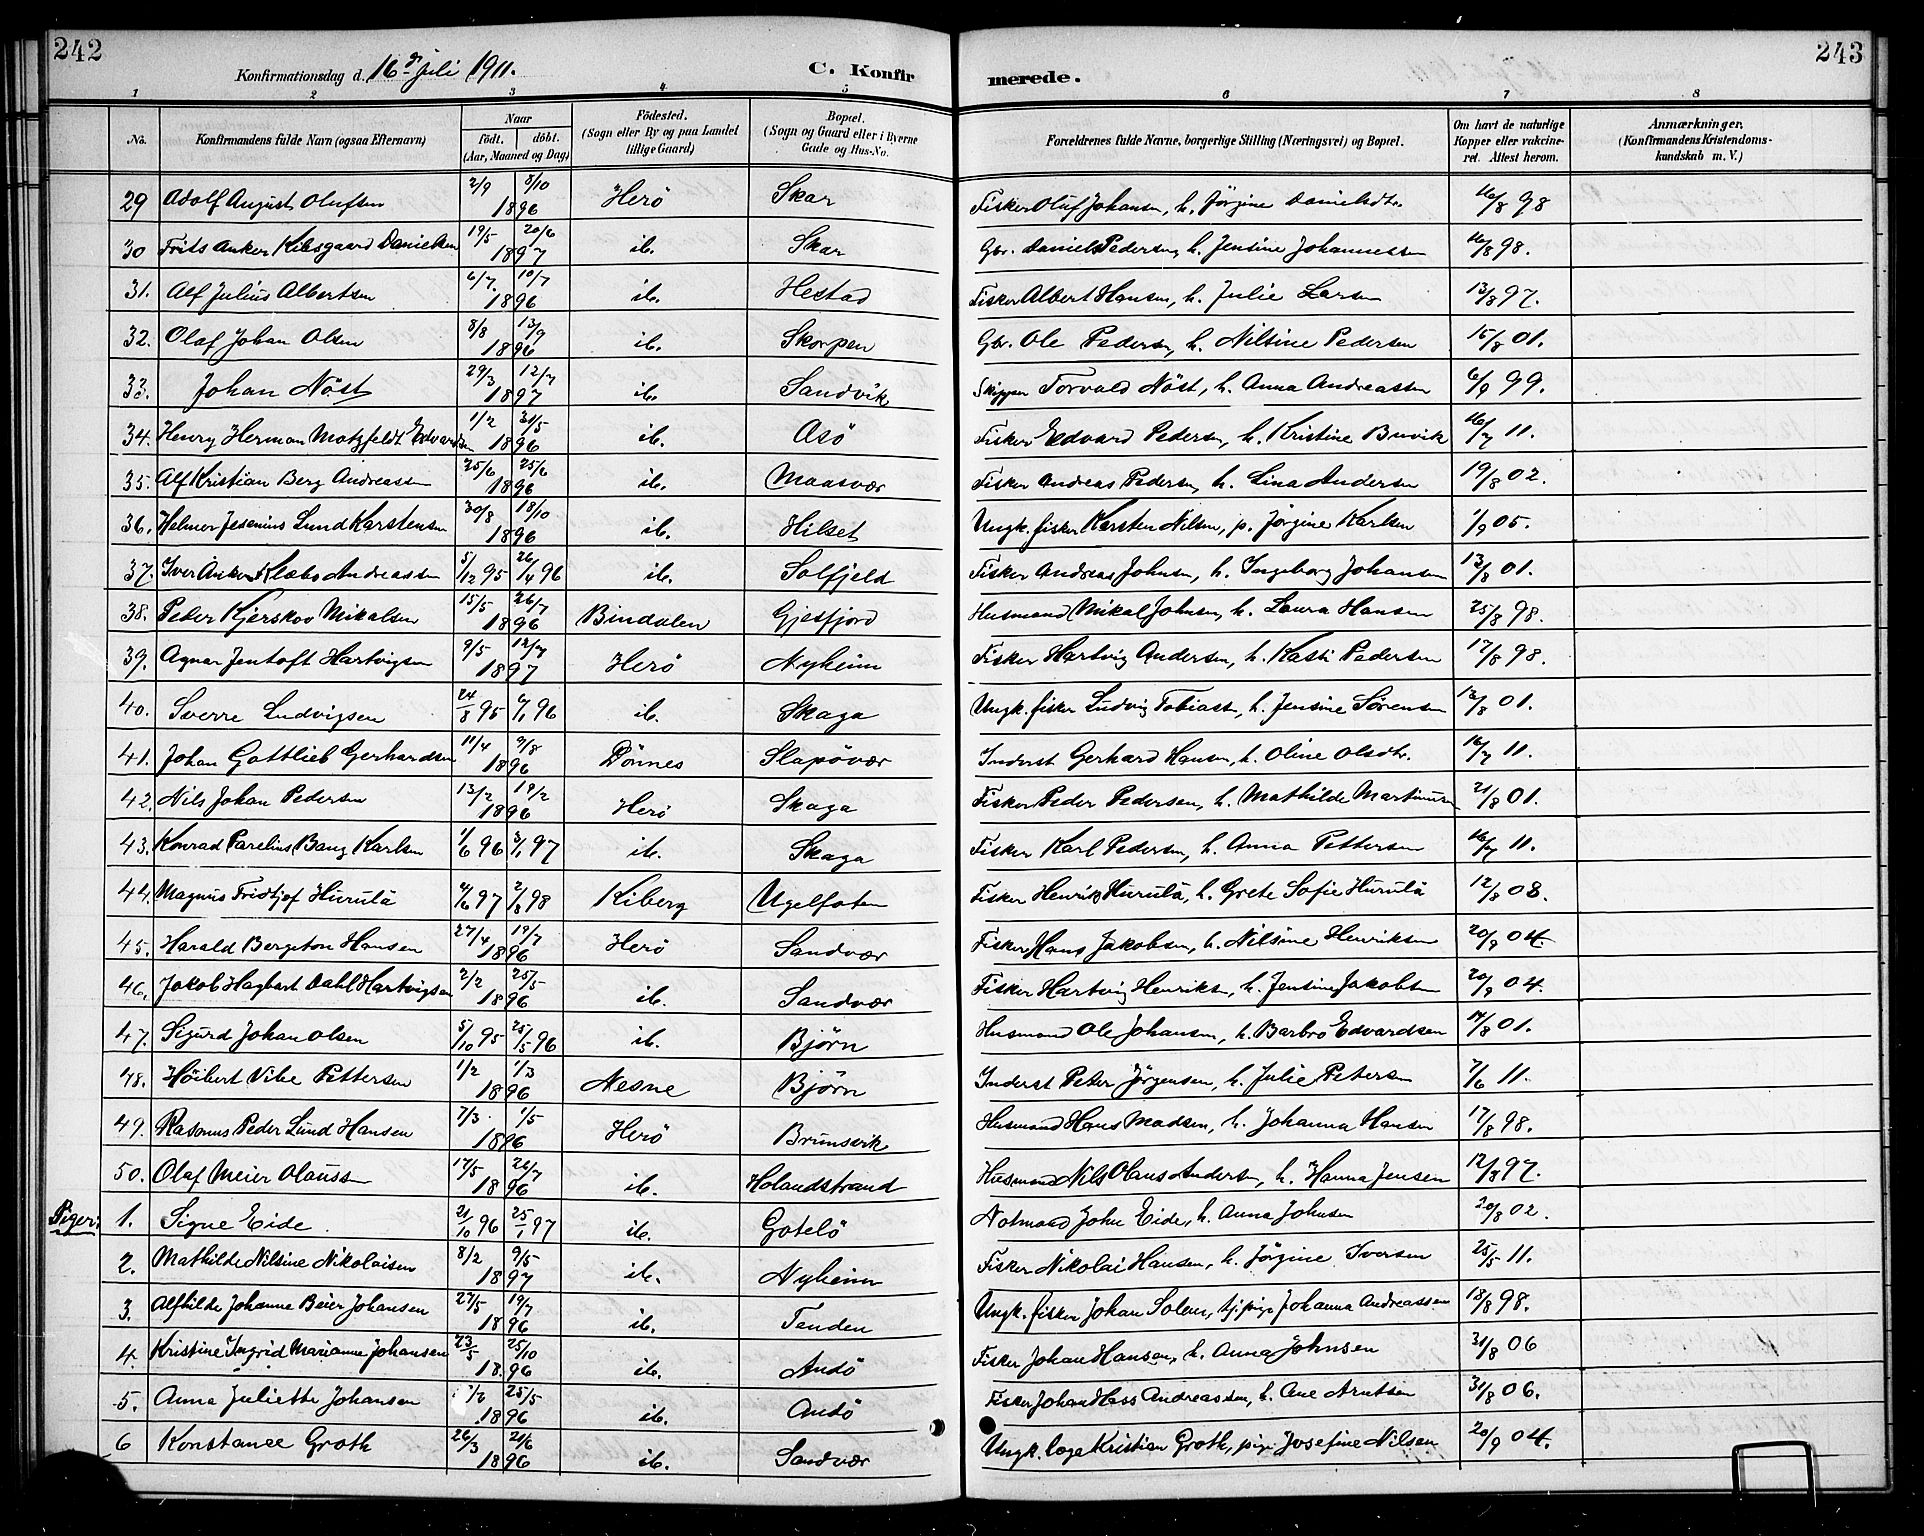 242
243
Konfirmationsdag d. 16de Juli 1911.
C. Konfirmerede.
1 2 3 4 5 6 7 8
No. | Konfirmandens fulde Navn (ogsaa Efternavn) | Naar födt. döbt. (Aar, Maaned og Dag) | Födested. (Sogn eller By og paa Landet tillige Gaard) | Bopæl. (Sogn og Gaard eller i Byerne Gade og Hus-No. | Forældrenes fulde Navne, borgerlige Stilling (Næringsvei) og Bopæl. | Om havt de naturlige Kopper eller vakcineret. Attest herom. | Anmærkninger, (Konfirmandens Kristendomskundskab m. V.)
29 Adolf August Olufsen 2/9 8/10 1896 Herö Skar Fisker Oluf Johansen, h. Jörgine Danielsdtr. 16/8 98
30 Frits Anker Kilsgaard Danielsen 19/5 20/6 1897 ib. Skar Gbr. Daniel Pedersen, h. Jensine Johannessen 16/8 98.
31. Alf Julius Albertsen 6/7. 10/7 1896 ib. Hestad Fisker Albert Hansen, h. Julie Larsen 13/8 97.
32. Olaf Johan Olsen 8/8 13/9 1896 ib. Skorpen Gbr. Ole Pedersen, h. Nilsine Pedersen 15/8 01.
33. Johan Nöst 29/3 12/7 1897 ib. Sandvik Skipper Torvald Nöst, h. Anna Andreassen 6/9 99.
34. Henry Herman Motzfeldt Edvardsen 1/2 31/5 1896 ib. Asö Fisker Edvard Pedersen, h. Kristine Buvik 16/7 11.
35. Alf Kristian Berg Andreassen 25/6 25/6 1896 ib. Maasvær Fisker Andreas Pedersen, h. Lina Andersen 19/8 02.
36. Helmer Jesenius Lund Karstensen 30/8 18/10 1896 ib. Hilset Ungk. fisker Karsten Nilsen, p. Jörgine Karlsen 1/9 05.
37. Iver Anker Klæbo Andreassen 5/12 95 26/4 96 ib. Solfjeld Fisker Andreas Johnsen, h. Ingeborg Johansen 13/8 01.
38. Peder Kjerskov Mikalsen 15/5 26/7 1896 Bindalen Gjesfjord Husmand Mikal Johnsen, h. Laura Hansen 25/8 98.
39. Agnar Jentoft Hartvigsen 9/5 12/7 1897 Herö Nyheim Fisker Hartvig Andersen, h. Kasti Pedersen 17/8 98.
40. Sverre Ludvigsen 24/8 95 6/1 96 ib. Skaga Ungk. fisker Ludvig Tobiassen, h. Jensine Sörensen 13/8 01.
41. Johan Gottlieb Gerhardsen 11/4 9/8 1896 Dönnes Slapövær Inderst Gerhard Hansen, h. Oline Olsdtr. 16/7 11.
42. Nils Johan Pedersen 13/2 19/2 1896 Herö Skaga Fisker Peder Pedersen, h. Mathilde Martinusen 21/8 01.
43. Konrad Parelius Bang Karlsen 1/6 96 3/1 97 ib. Skaga Fisker Karl Pedersen, h. Anna Pettersen 16/7 11.
44. Magnus Fridtjof Hurula 4/6 97 2/8 98 Kiberg Ugelfoten Fisker Henrik Hurula, h. Grete Sofie Hurula 12/8 08.
45. Harald Bergeton Hansen 27/4 19/7 1896 Herö Sandvær Fisker Hans Jakobsen, h. Nilsine Henriksen 20/9 04.
46. Jakob Hagbart Dahl Hartvigsen 2/2 25/5 1896 ib. Sandvær Fisker Hartvig Henriksen, h. Jensine Jakobsen 20/9 04.
47. Sigurd Johan Olsen 5/10 95 25/5 96 ib. Björn Husmand Ole Johansen, h. Barbro Edvardsen 14/8 01.
48. Höibert Vibe Pettersen 1/2 1/3 1896 Nesne Björn Inderst Peter Jörgensen, h. Julie Petersen 7/6 11.
49. Rasmus Peder Lund Hansen 7/3. 1/5 1896 Herö Brunsvik Husmand Hans Madsen, h. Johanna Hansen 17/8 98.
50. Olaf Meier Olaussen 17/5 26/7 1896 ib. Holandstrand Husmand Nils Olaus Andersen, h. Hanna Jensen 12/8 97.
Piger:
1. Signe Eide. 21/10 96 25/1 97 ib. Gotelö Notmand John Eide, h. Anna Johnsen 20/8 02.
2. Mathilde Nilsine Nikolaisen 8/2 9/5 1897 ib. Nyheim Fisker Nikolai Hansen, h. Jörgine Iversen 25/5 11.
3. Alfhilde Johanne Beier Johansen 27/5 19/7 1896 ib. Tenden Ungk. fisker Johan Solem, tj. pige Johanna Andreassen 18/8 98.
4. Kristine Ingrid Marianne Johansen 23/5 25/10 1896 ib. Andö Fisker Johan Hansen, h. Anna Johnsen 31/8 06
5. Anna Juliette Johansen /2 25/5 1896 ib. Andö Fisker Johan Hass Andreassen, h. Ane Arntsen 31/8 06.
6 Konstance Groth 26/3 21/6 1896 ib. Sandvær Ungk. læge Kristian Groth, pige Josefine Nilsen 20/9 04.